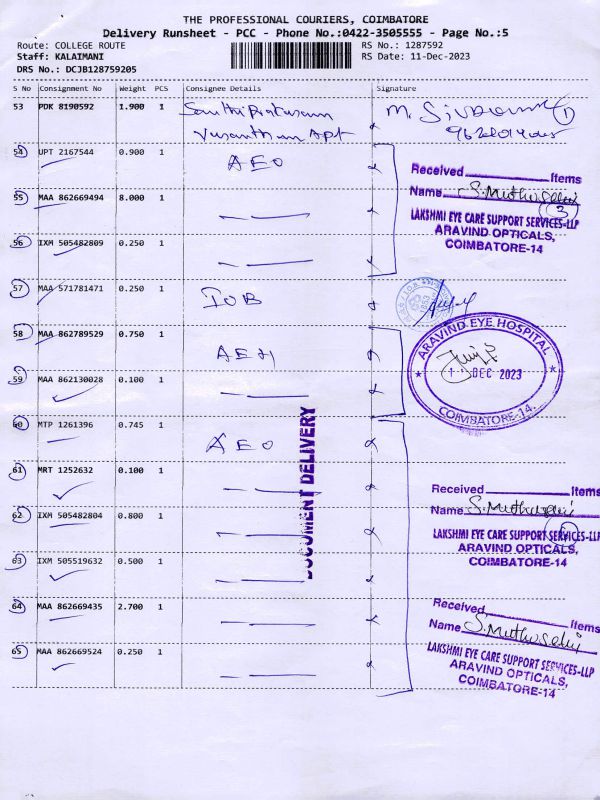 THE PROFESSIONAL COURIERS, COIMBATORE
Delivery Runsheet - PCC - Phone No.:0422-3505555 - Page No.:5
Route: COLLEGE ROUTE
Staff: KALAIMANI
DRS No.: DCJB128759205
RS No.: 1287592
RS Date: 11-Dec-2023
S No Consignment No Weight PCS Consignee Details Signature
53 PDK 8190592 1.900 1
Apt
54 UPT 2167544 0.900 1 AEO
55 MAA 862669494 8.000 1
56 IXM 505482809 0.250 1
Received Items
Name S. Muthuselvi
3
LAKSHMI EYE CARE SUPPORT SERVICES-LLP
ARAVIND OPTICALS,
COIMBATORE-14
57 MAA 571781471 0.250 1 IOB
58 MAA 862789529 0.750 1 AEH
59 MAA 862130028 0.100 1
ARAVIND EYE HOSPITAL
DEC 2023
COIMBATORE-14.
60 MTP 1261396 0.745 1 AEO
61 MRT 1252632 0.100 1
62 IXM 505482804 0.800 1
63 IXM 505519632 0.500 1
64 MAA 862669435 2.700 1
65 MAA 862669524 0.250 1
DOCUMENT DELIVERY
Received Items
Name S. Muthuselvi
LAKSHMI EYE CARE SUPPORT SERVICES-LLP
ARAVIND OPTICALS,
COIMBATORE-14
Received Items
Name S. Muthuselvi
LAKSHMI EYE CARE SUPPORT SERVICES-LLP
ARAVIND OPTICALS,
COIMBATORE-14